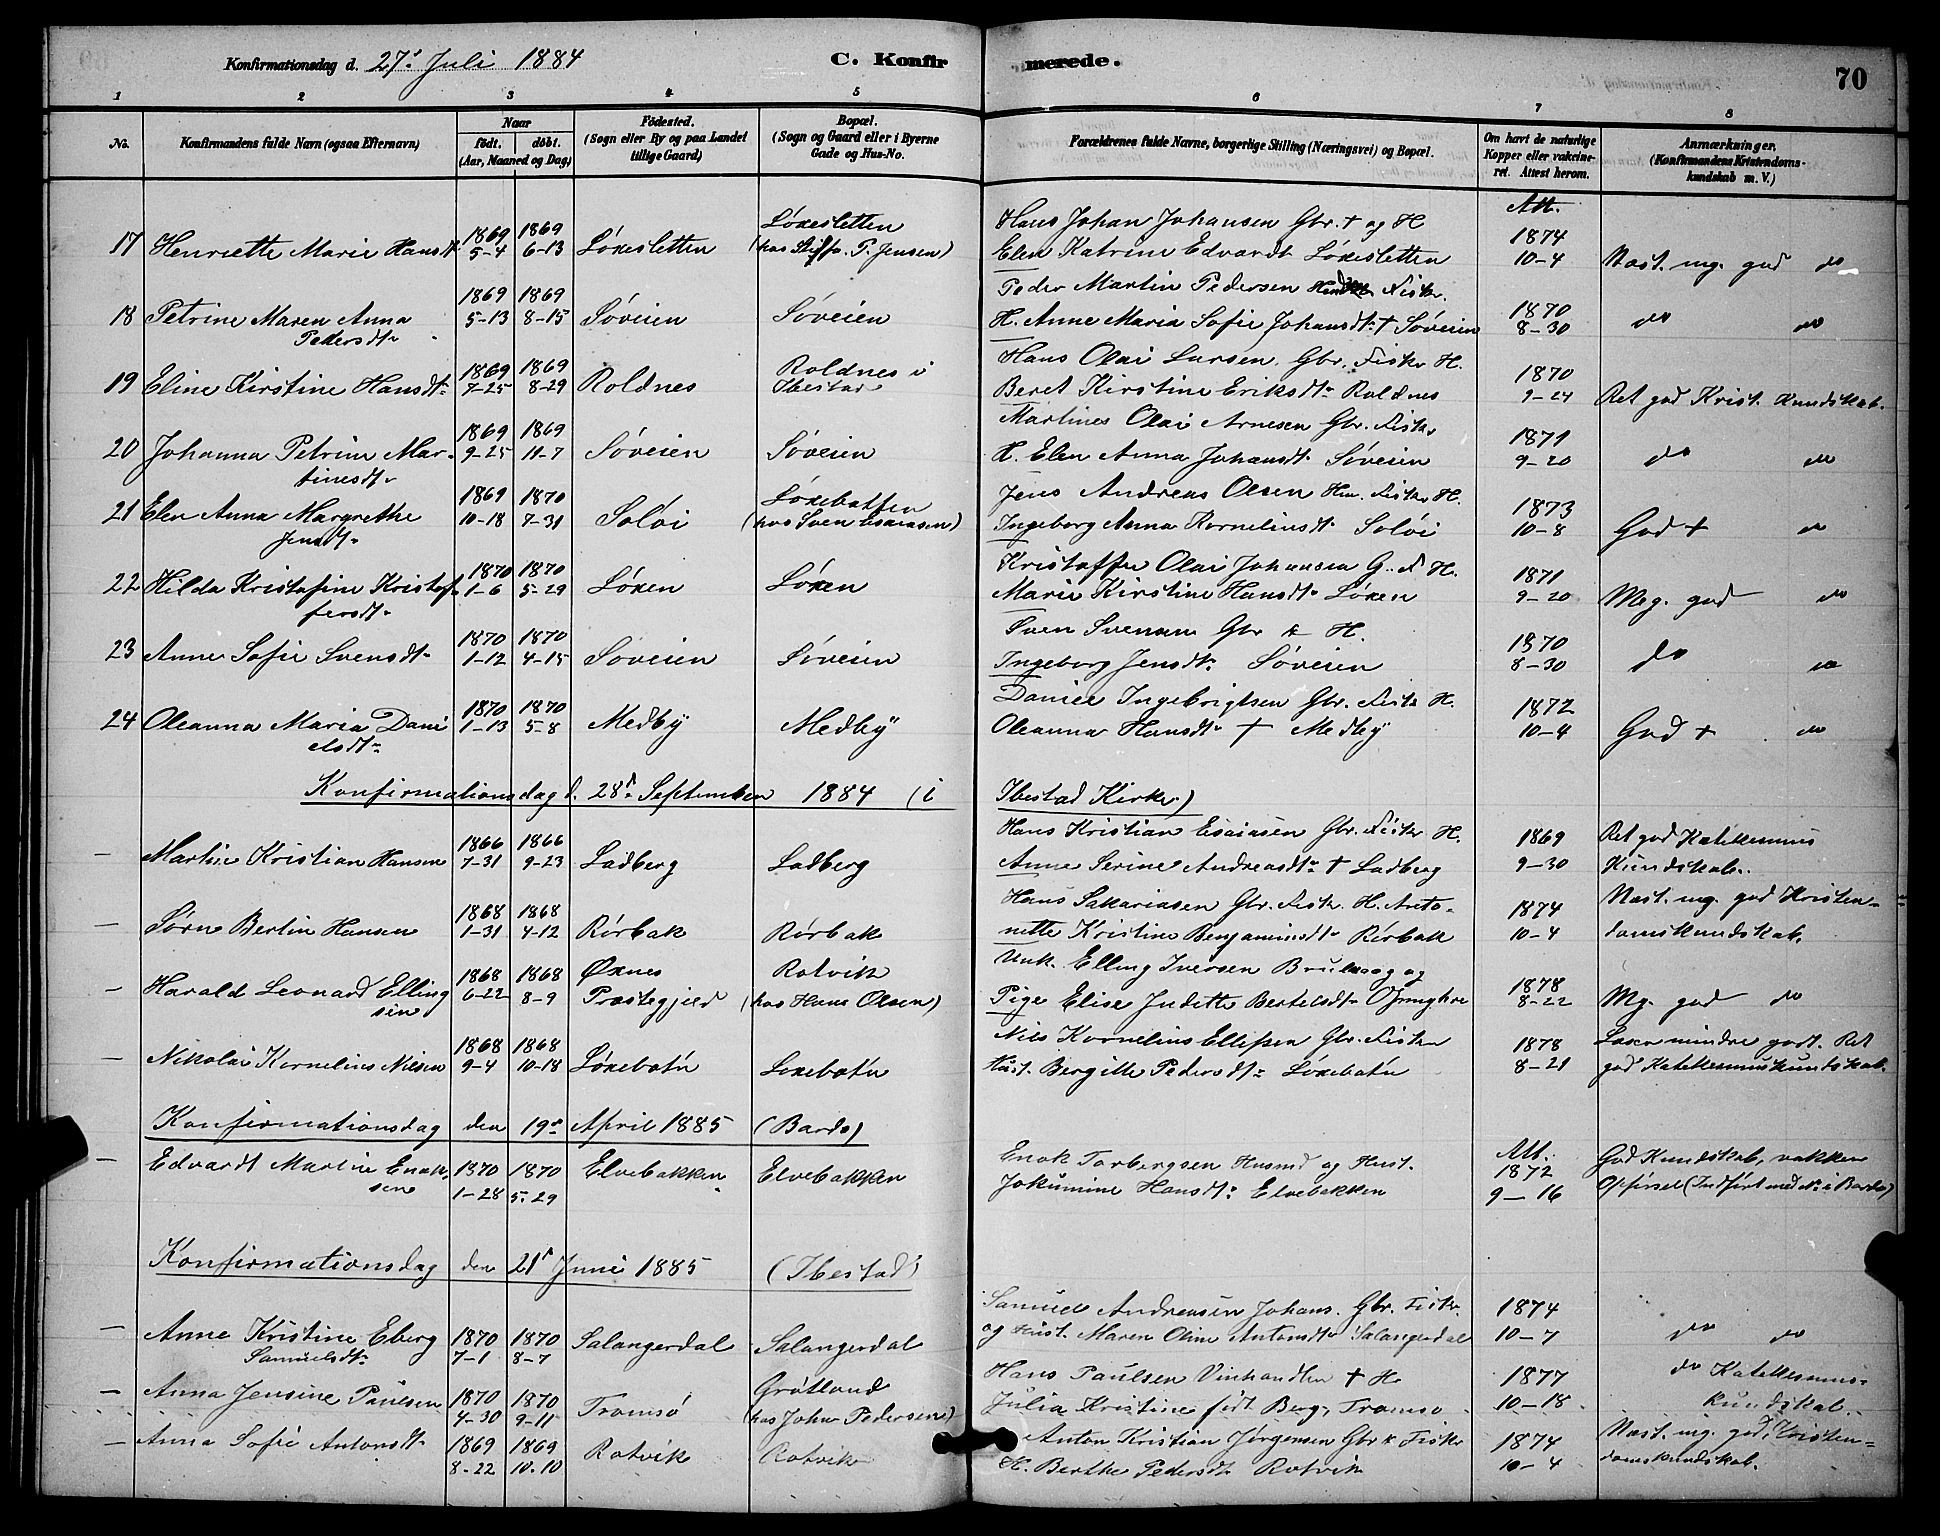 Konfirmationsdag d. 27de Juli 1884 C. Konfirmerede. 70
1 2 3 4 5 6 7 8
No. Konfirmandens fulde Navn (ogsaa Efternavn) Naar født. døbt. (Aar, Maaned og Dag) Fødested. (Sogn eller By og paa Landet tillige Gaard) Bopæl. (Sogn og Gaard eller i Byerne Gade og Hus-No. Forældrenes fulde Navne, borgerlige Stilling (Næringsvei) og Bopæl. Om havt de naturlige Kopper eller vakcineret. Attest herom. Anmærkninger. (Konfirmandens Kristendomskundskab m. V.)
Løxesletten Hans Johan Johansen Gbr. + og H Att.
17 Henriette Marie Hansdt 1869 5-4 1869 6-13 Løxesletten (hos P. Jensen) Elen Katrine Edvardt Løxesletten 1874 10-4 Næst. mg. god do
Peder Martin Pedersen Fisker.
18 Petrine Maren Anna 1869 5-13 1869 8-15 Søveien Søveien H. Anne Maria Sofie Johansdt + Søveien 1870 8-30 do do
Pedersdt
Hans Olai Larsen Gbr. Fisker H.
19 Eline Kirstine Hansdt 1869 7-25 1869 8-29 Roldnes Roldnes i Ibestad Beret Kirstine Eriksdt Roldnes 1870 9-24 Ret god Krist. Kundskab.
Martines Olai Arnesen Gbr. Fisker
20 Johanna Petrine Mar- 1869 9-25 1869 11-7 Søveien Søveien H. Elen Anna Johansdt Søveien 1871 9-20 do do
tinesdt
Løxebotten Jens Andreas Olsen Hm. Fisker H.
21 Elen Anna Margrethe 1869 10-18 1870 7-31 Soløi (hos Sven Esaiasen) Ingeborg Anna Korneliusdt Soløi 1873 10-8 God + do
Jensdt
Kristoffer Olai Johansen G. F H.
22 Hilda Kristofine Kristof- 1870 1-6 1870 5-29 Løxen Løxen Marie Kirstine Hansdt Løxen 1871 9-20 Meg. god do
fersdt
Sven Svensen Gbr & H.
23 Anne Sofie Svensdt 1870 1-12 1870 4-15 Søveien Søveien Ingeborg Jensdt Søveien 1870 8-30 do do
Daniel Ingebrigtsen Gbr. Fisk H.
24 Oleanna Maria Dani 1870 1-13 1870 5-8 Medby Medby Oleanna Hansdt + Medby 1872 10-4 God + do
elsdt
Konfirmationsdag d. 28de September 1884 (i Ibestad Kirke)
Hans Kristian Esaiasen Gbr. Fisker H. Ret god Katekesmus
— Martin Kristian Hansen 1866 7-31 1866 9-23 Ladberg Ladberg Anne Serine Andreasdt + Ladberg 1869 9-30 Kundskab.
Hans Sakariasen Gbr. Fisk. H. Anto- Næst. mg. god Kristen-
— Sørn Bertin Hansen 1868 1-31 1868 4-12 Rørbak Rørbak nette Kristine Benjaminsdt Rørbak 1874 10-4 domskundskab.
Øxnes Rotvik Unk. Elling Iversen og
— Harald Leonard Elling 1868 6-22 1868 8-9 Præstegjeld (hos Hans Olsen) Pige Elise Judette Bertelsdt 1878 8-22 Mg. god do
sen
Nils Kornelius Ellingsen Gbr. Fisker Læser mindre godt. Ret
— Nikolai Kornelius Nilsen 1868 9-4 1868 10-18 Løxebotn Loxebotn Hust. Bergitte Pedersdt Løxebotn 1878 8-21 god Katekesmuskundskab.
Konfirmationsdag den 19de April 1885 (Bardo)
— Edvardt Martin Enok 1870 1-28 1870 5-29 Elvebakken Elvebakken Enok Torbergsen Husmd og Hust. Att. 1872 God Kundskab, vakker
sen Jokumine Hansdt Elvebakken 9-16 Opførsel (Indført med No i Bardo)
Konfirmationsdag den 21de Juni 1885 (Ibestad)
Samuel Andreasen Johans. Gbr. Fisker.
— Anne Kristine Eberg 1870 7-1 1870 8-7 Salangerdal Salangerdal og Hust. Maren Oline Antonsdt Salangerdal 1874 10-7 do do
Samuelsdt
Grøtland Hans Paulsen Vinhandler + H. do Katekesmus-
— Anna Jensine Paulsen 1870 4-30 1870 9-11 Tromsø (hos John Pedersen) Julia Kristine født Berg, Tromsø 1877 10-18 kundskab.
Anton Kristian Jørgensen Gbr & Fisker Næst. mg. god Kristen-
— Anna Sofie Antonsdt 1869 8-22 1869 10-10 Rotvik Rotvik H. Berthe Pedersdt Rotvik 1874 10-4 domskundskab.